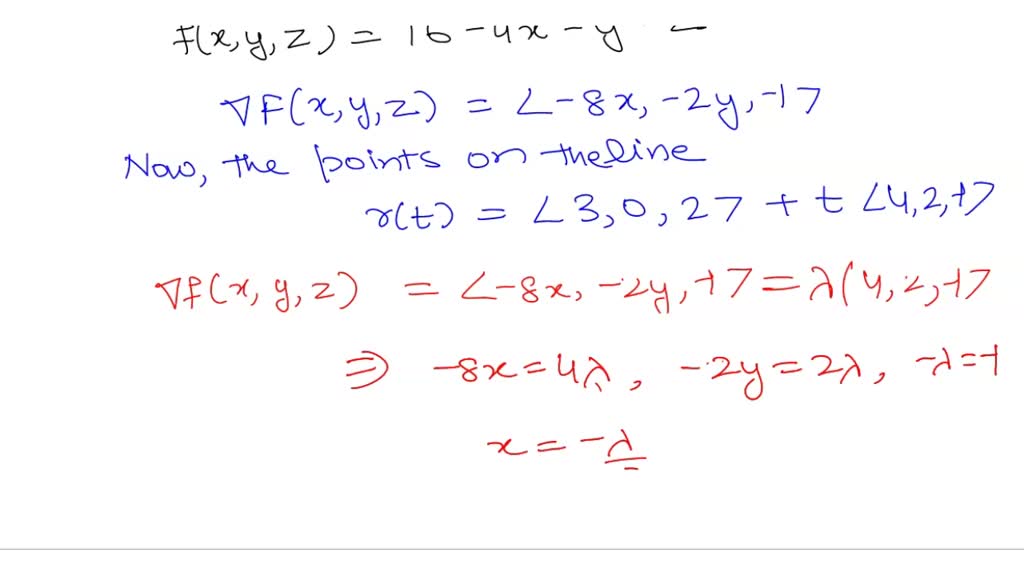 F(x,y,z) = 16-4x-y -
∇F(x,y,z) = <-8x, -2y, -1>
Now, the points on the line
r(t) = <3,0,2> + t <4,2,-1>
∇f(x,y,z) = <-8x, -2y, -1> = λ(4,2,-1>
⇒ -8x=4λ, -2y=2λ, -λ=-1
x = -λ